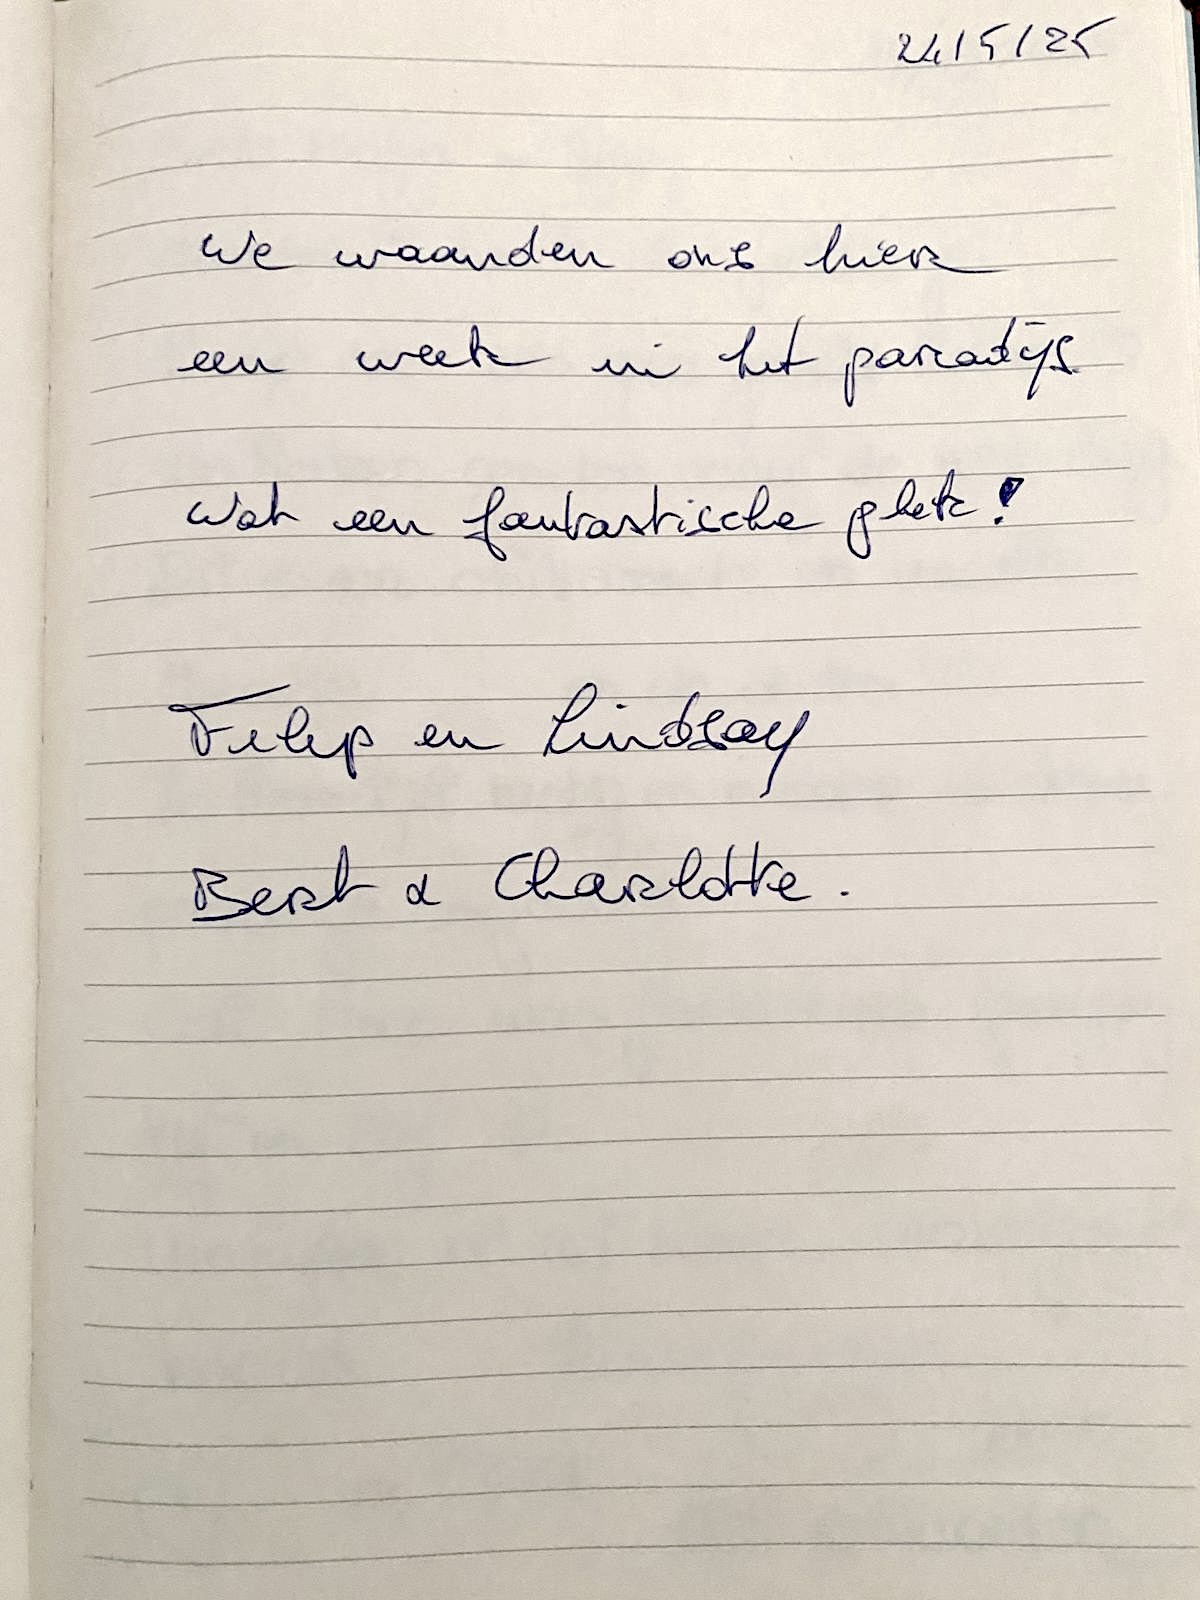 24/5/25
We waanden ons hier
een week in het paradijs
Wat een fantastische plek!
Filip en Lindsay
Bert & Charlotte.